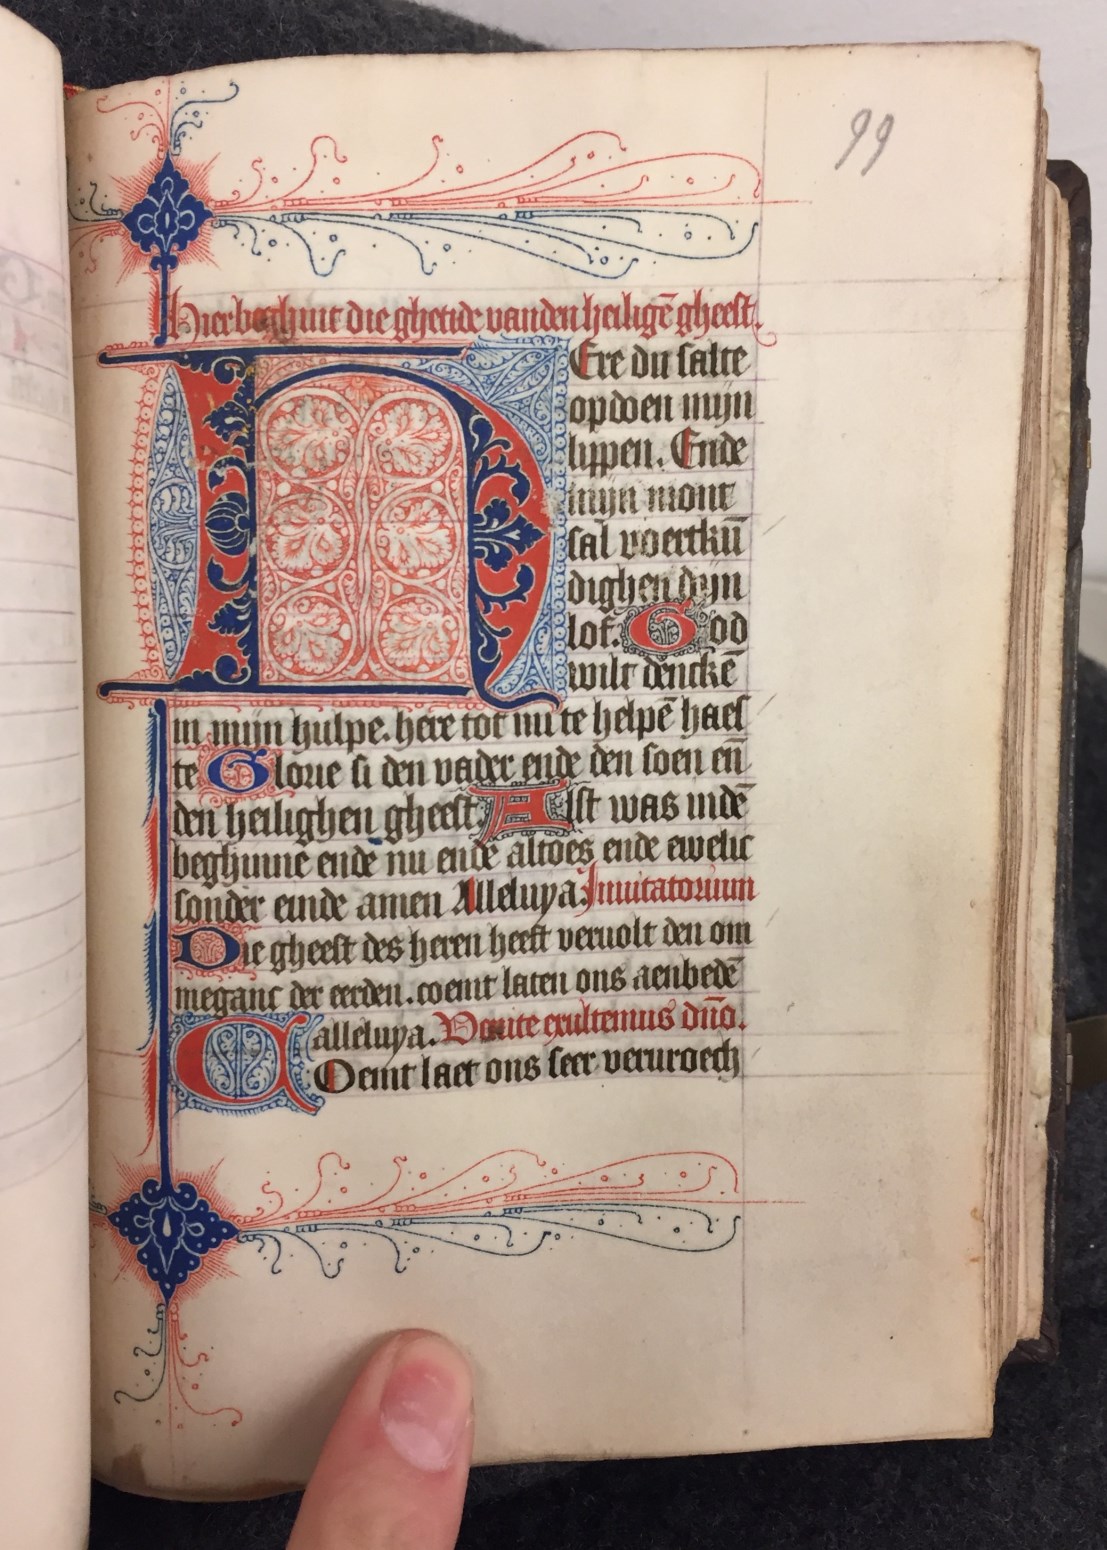 99
Hier beghint die ghetide vanden heiligē gheest.
HEre du salte
opdoen mijn
lippen. Ende
mijn mont
sal voertkū
dighen dijn
lof. God
wilt denckē
in mijn hulpe. here tot mi te helpē haes
te Glorie si den vader ende den soen eñ
den heilighen gheest. Alst was indē
beghinne ende nu ende altoes ende ewelic
sonder einde amen Alleluya. Inuitatorium
Die gheest des heren heeft veruolt den om
meganc der eerden. coemt laten ons aenbedē
alleluya. Venite exultemus dño.
COemt laet ons seer veruroech